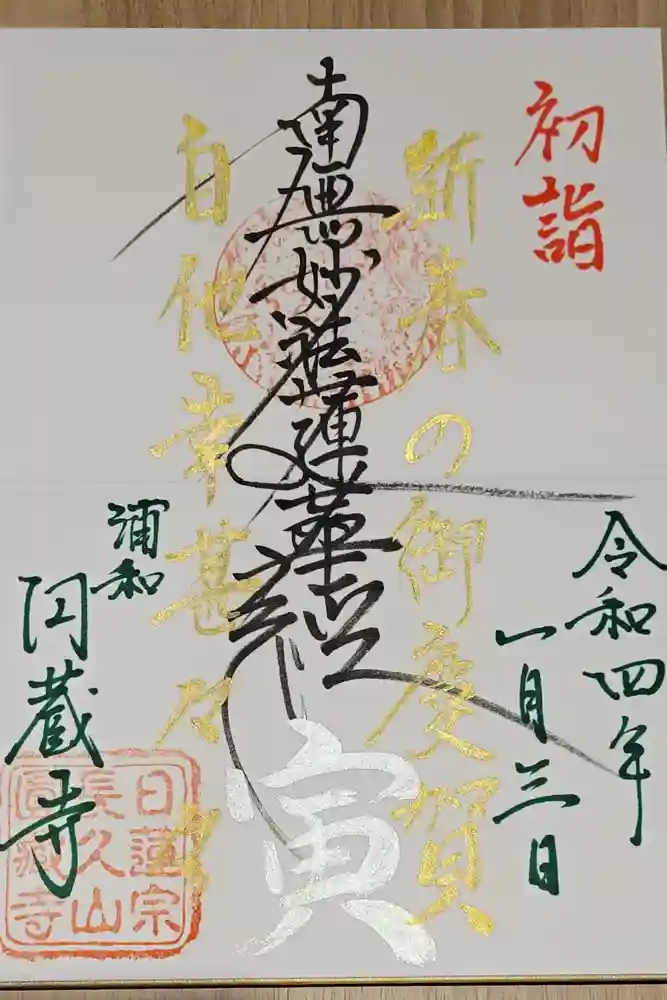 初詣
令和四年
一月三日
新春の御慶賀
南無妙法蓮華経
寅
自他幸甚々々
浦和
円蔵寺
日蓮宗
長久山
圓蔵寺